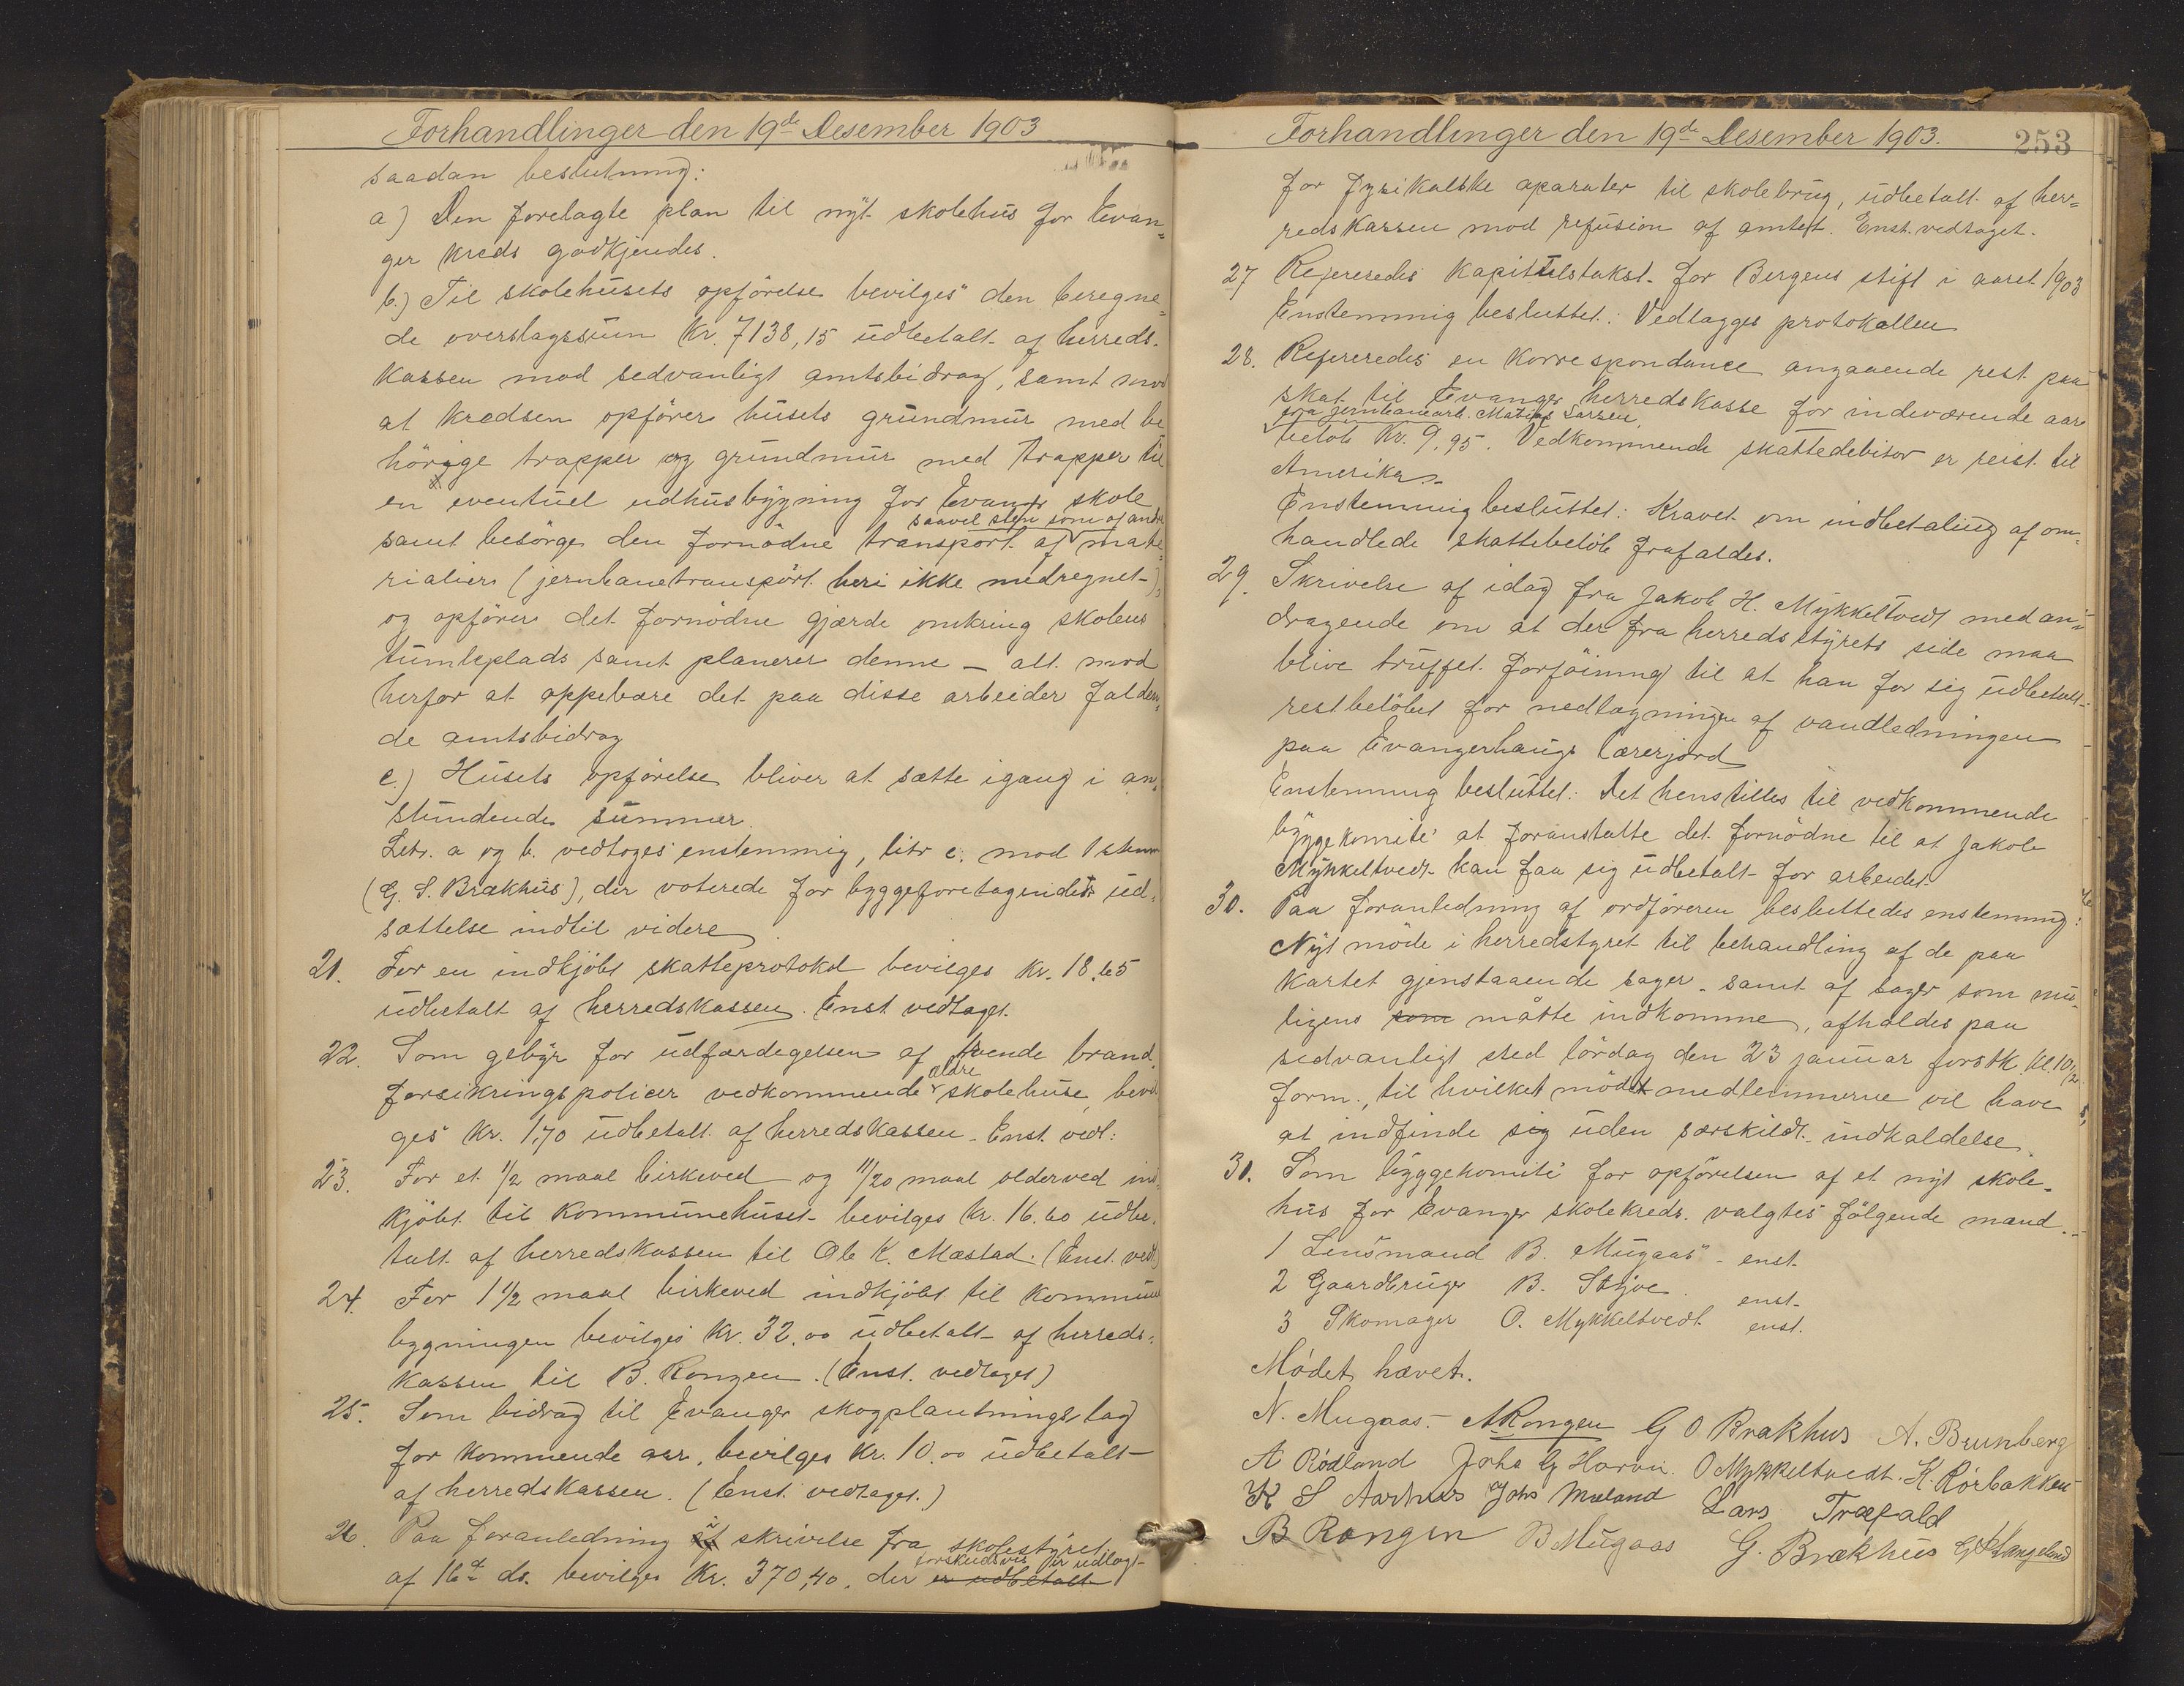 Forhandlinger den 19de Desember 1903
saadan beslutning:
a) Den forelagte plan til nyt skolehus for Evan=
ger kreds godkjendes.
b.) Til skolehusets opførelse bevilges den beregne=
de overslagssum Kr. 7138,15 udbetalt af herreds-
kassen mod sedvanligt amtsbidrag, samt mod
at kredsen opfører husets grundmur med be
hørige trapper og grundmur med trapper til
en eventuel udhusbygning for Evanger skole
saavel sten som af andre
samt besørge den fornødne transport af mate=
rialier (jernbanetransport heri ikke medregnet),
og opfører det fornødne gjærde omkring skolens
tumleplads samt planerer denne – alt mod
herfor at oppebære det paa disse arbeider falden=
de amtsbidrag
c.) Husets opførelse bliver at sætte igang i an=
stundende sommer.
Letr. a og b. vedtoges enstemmig, litr c. mod 1 stem
(G. S. Brækhus), der voterede for byggeforetagendets ud=
sættelse indtil videre
21. For en indkjøbt skatteprotokol bevilges Kr. 18.65
udbetalt af herredskassen. Enst vedtaget.
22. Som gebyr for udfærdegelsen af tvende brand=
ældre
forsikringspolicer vedkommende skolehuse, bevil
ges Kr. 1,70 udbetalt af herredskassen. Enst. vedt:
23. For et 1/2 maal birkeved og 11/20 maal olderved ind=
kjøbt til kommunehuset bevilges Kr. 16.60 udbe=
talt af herredskassen til Ole K. Mæstad. (Enst. vedt)
24. For 1 1/2 maal birkeved indkjøbt til kommune
bygningen bevilges Kr. 32.00 udbetalt af herreds=
kassen til B. Rongen. (Enst. vedtaget)
25. Som bidrag til Evanger skogplantningslag
for kommende aar, bevilges Kr. 10.00 udbetalt
af herredskassen. (Enst. vedtaget.)
26. Paa foranledning i skrivelse fra skolestyret
forskudsvis er udlagt
af 16de ds. bevilges Kr. 370,40, der er udbetalt
Forhandlinger den 19de Desember 1903.
253
for fysikalske aparater til skolebrug, udbetalt af her=
redskassen mod refusion af amtet. Enst. vedtaget.
27 Refereredes kapittelstakst for Bergens stift i aaret 1903
Enstemmig besluttet: Vedlægges protokollen
28. Refereredes en korrespondance angaaende rest paa
skat til Evanger herredskasse for indeværende aar
fra jernbanearb. Matias Larsen,
beløb Kr. 9,95. Vedkommende skattedebitor er reist til
Amerika.
Enstemmig besluttet: Kravet om indbetaling af om=
handlede skattebeløb frafaldes.
29. Skrivelse af idag fra Jakob H. Mykkeltvedt med an=
dragende om at der fra herredsstyrets side maa
blive truffet forføining til at han for sig udbetalt
restbeløbet for nedlægningen af vandledningen
paa Evangerhaugs lærerjord
Enstemmig besluttet: Det henstilles til vedkommende
byggekomite at foranstalte det fornødne til at Jakob
Mykkeltvedt kan faa sig udbetalt for arbeidet.
30. Paa foranledning af ordføreren besluttedes enstemmig:
Nyt møde i herredstyret til behandling af de paa
kartet gjenstaaende sager samt af sager som mu=
ligens som måtte indkomme, afholdes paa
sedvanligt sted lørdag den 23 januar førstk. kl. 10 1/2
form., til hvilket møde medlemmerne vil have
at indfinde sig uden særskildt indkaldelse.
31. Som byggekomité for opførelsen af et nyt skole=
hus for Evanger skolekreds valgtes følgende mænd.
1 Lensmand B. Mugaas enst.
2 Gaardbruger B. Styve enst.
3 Skomager O. Mykkeltvedt enst.
Mødet hævet.
N. Mugaas. A Rongen G O Brakhus A. Brunborg
A Rødland Johs G Horvei. O Mykkeltvedt. K. Rørbakken
K S Aarhus Johs Mæland Lars Træfald
B Rongen B Mugaas G. Brækhus